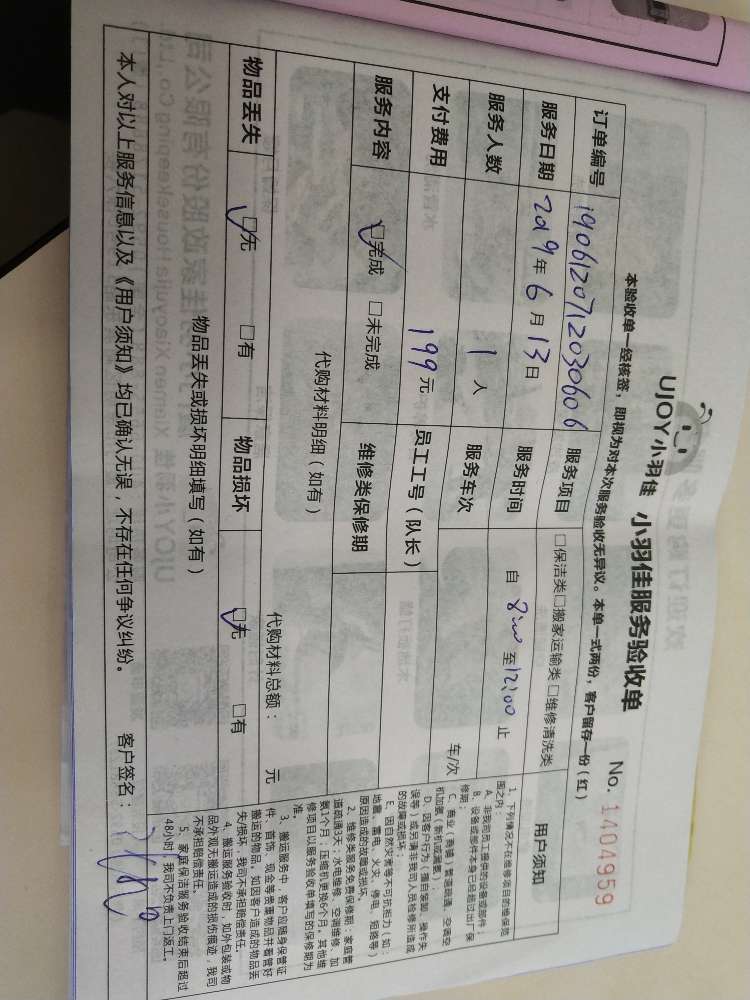 UJOY小羽佳 小羽佳服务验收单 No. 1404959
本验收单一经核签，即视为对本次服务验收无异议。本单一式两份，客户留存一份（红）
订单编号 1906120712030606 服务项目 □保洁类□搬家运输类□维修清洗类
服务日期 2019年6月13日 服务时间 自 8:00 至 12:00 止
服务人数 1 人 服务车次 车/次
支付费用 199元 员工工号（队长）
服务内容 □完成 □未完成 维修类保修期
代购材料明细（如有） 代购材料总额： 元
物品丢失 □无 □有 物品损坏 □无 □有
物品丢失或损坏明细填写（如有）
用户须知
1. 下列情况不在维修项目的维保范
围之内：
A. 非我司员工提供的设备或部件；
B. 设备或部件本身已经超过出厂保
修期；
C. 商业（商铺）管道疏通、空调空
机加氨（新机或漏氨）；
D. 因客户行为；擅自装卸、操作失
误等）或另请非我司人员检修所造成
的故障或损坏；
E. 因自然灾害等不可抗拒力（如：
地震、雷电、火灾、停电、短路等）
原因造成的故障或损坏。
2. 维修类服务免费保修期：家庭管
道疏通3天；水电维修、空调维修、加
氨1个月；压缩机更换6个月。其他维
修项目以服务验收单填写的保修期为
准。
3. 搬运服务中，客户应随身保管证
件、首饰、现金等贵重物品并看管好
搬运的物品，如因客户造成的物品丢
失/损坏，我司不承担赔偿责任。
4. 搬运服务验收时，如外包装或物
品外观无搬运造成的损伤痕迹，我司
不承担赔偿责任。
5. 家庭保洁服务验收结束后超过
48小时，我司不负责上门返工。
本人对以上服务信息以及《用户须知》均已确认无误，不存在任何争议纠纷。 客户签名：